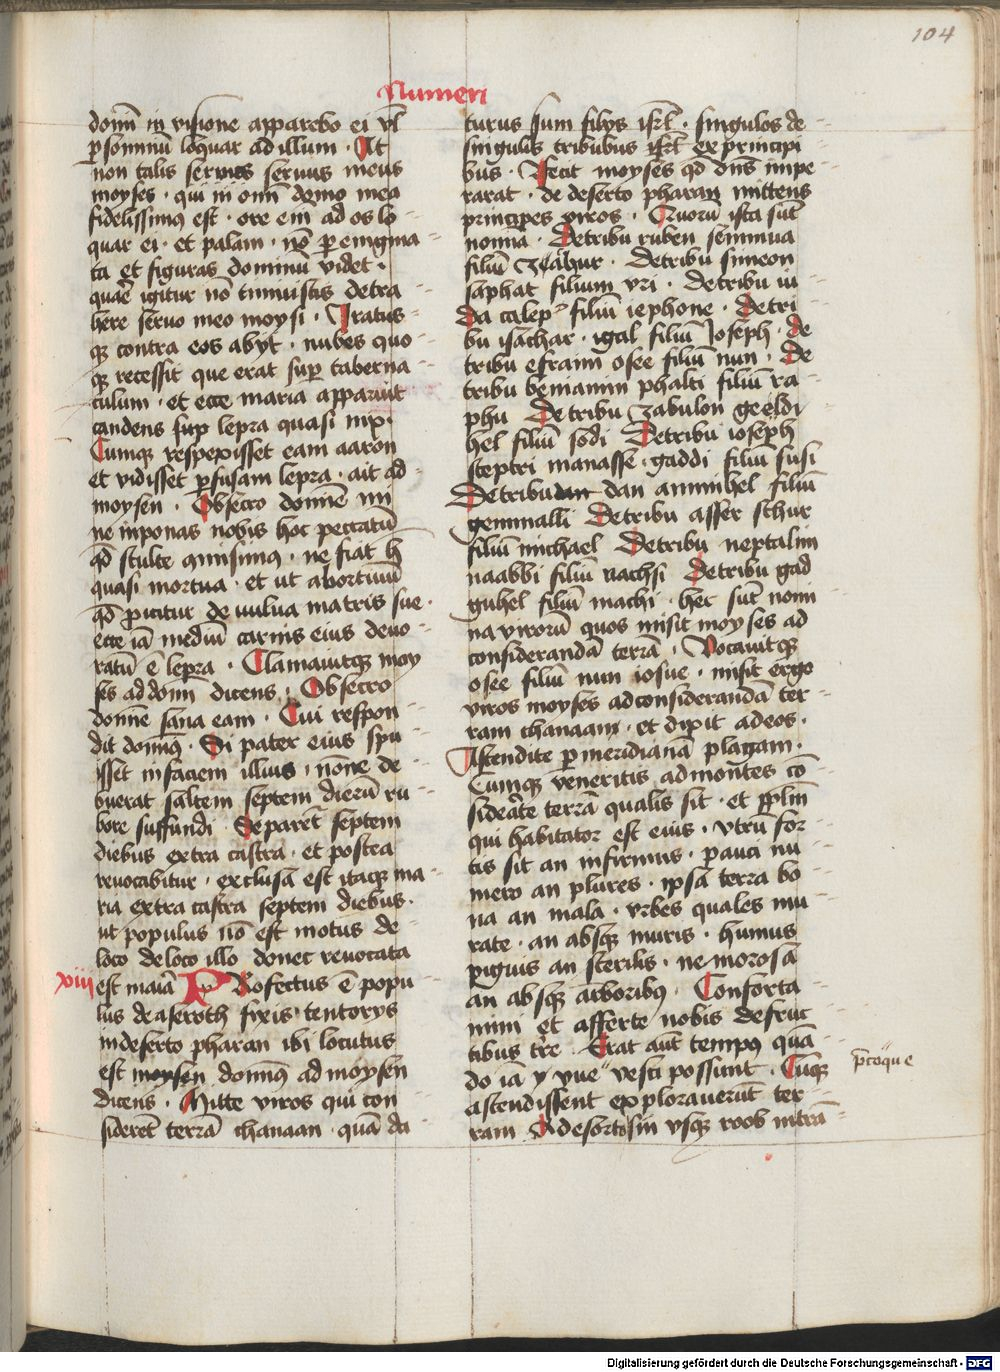 104
Numeri
domin in visione apparebo ei vl
p somniū loquar ad illum · At
non talis servus meus
moyses · qui in omi domo mea
fidelissimus est · ore eni ad os lo
quar ei · et palam · nō p enigma
ta et figuras dominū videt ·
quare igitur nō timuistis detra
here servo meo moysi · Iratus
qz contra eos abyt · nubes quo
qz recessit que erat sup taberna
culum · et ecce maria apparuit
candens sup lepra quasi nix ·
Cumqz respexisset eam aaron
et vidisset pfusam lepra · ait ad
moysen · Obsecro domine mi
ne inponas nobis hoc peccatū
qd stulte omisimus · ne fiat h
quasi mortua · et ut abortiuū
qd picitur de uulua matris sue ·
ecce iā mediū carnis eius deuo
ratū ē lepra · Clamauitqz moy
ses ad domi dicens · Obsecro
domine sana eam · Cui respon
dit domin9 · Si pater eius spu
isset in faciem illius · nōne de
buerat saltem septem dierū ru
bore suffundi · Separet septem
diebus extra castra · et postea
reuocabitur · exclusa est itaqz ma
ria extra castra septem diebus ·
ut populus nō est motus de
loco de loco illo donec reuocata
xiij est maia Profectus ē popu
lus de aseroth fixis tentorys
in deserto pharan ibi locutus
est moysen domin9 ad moysen
dicens · Mitte viros qui con
sideret terrā chanaan · quā da
turus sum filys isrl · singulos de
singulis tribubus isrl ex principi
bus · Fecit moyses qd dns impe
rarat · de deserto pharan mittens
principes viros · Quorū ista sūt
nomina · De tribu ruben semmua
filiū zechur · De tribu simeon
saphat filium vri · De tribu iu
da caleph filiū iephone · De tri
bu isachar · igal filiū Ioseph · de
tribu efraim osee filiū nun · De
tribu beniamin phalti filiū ra
phu De tribu zabulon geddi
hel filiū sodi De tribu ioseph
sceptri manasse · gaddi filiū susi
De tribu dan dan ammihel filiū
gemmalli De tribu asser sthur
filiū michael De tribu neptalim
naabbi filiū nachsi De tribu gad
guhel filiū machi · hec sūt nomi
na virorū quos misit moyses ad
considerandā terrā · Vocauitqz
osee filiū nun iosue · misit ergo
viros moyses ad considerandā ter
ram chanaam · et dixit ad eos ·
Ascendite p meridianā plagam ·
Cumqz veneritis ad montes cō
siderate terrā qualis sit · et pplm
qui habitator est eius · vtrū for
tis sit an infirmus · pauci nu
mero an plures · ipsa terra bo
na an mala · vrbes quales mu
rate · an absqz muris · humus
piguis an sterilis · nemorosa
an absqz arboribus · Conforta
mini et afferte nobis de fruc
tibus tre · Erat aut tempus quā
do iā p vue vesci possunt · Cūqz
pcoque
ascendissent explorauerūt ter
ram A deserto sin vsqz roob intrā
Digitalisierung gefördert durch die Deutsche Forschungsgemeinschaft - DFG